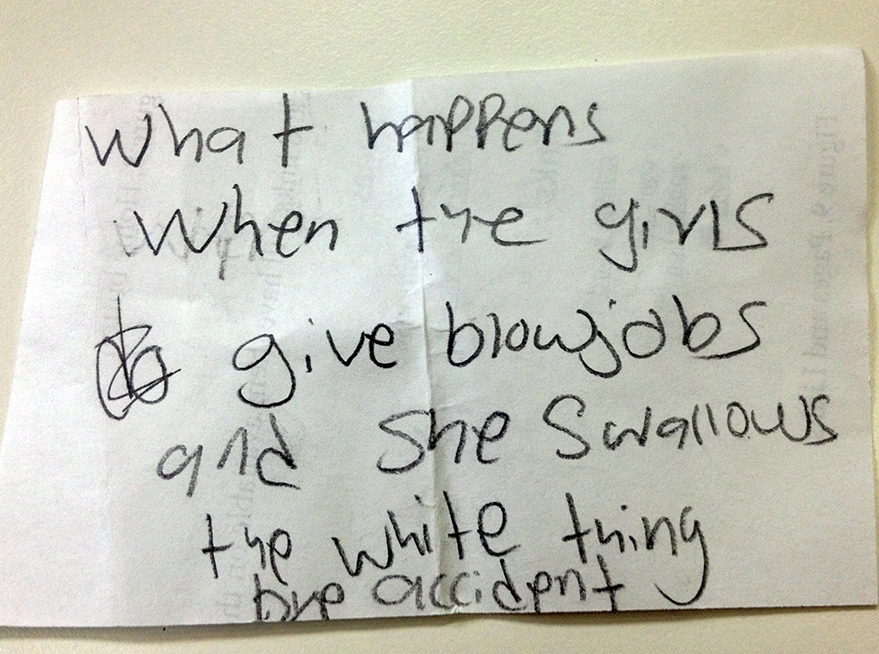 What happens
When the girls
give blowjobs
and She Swallows
the white thing
bye accident